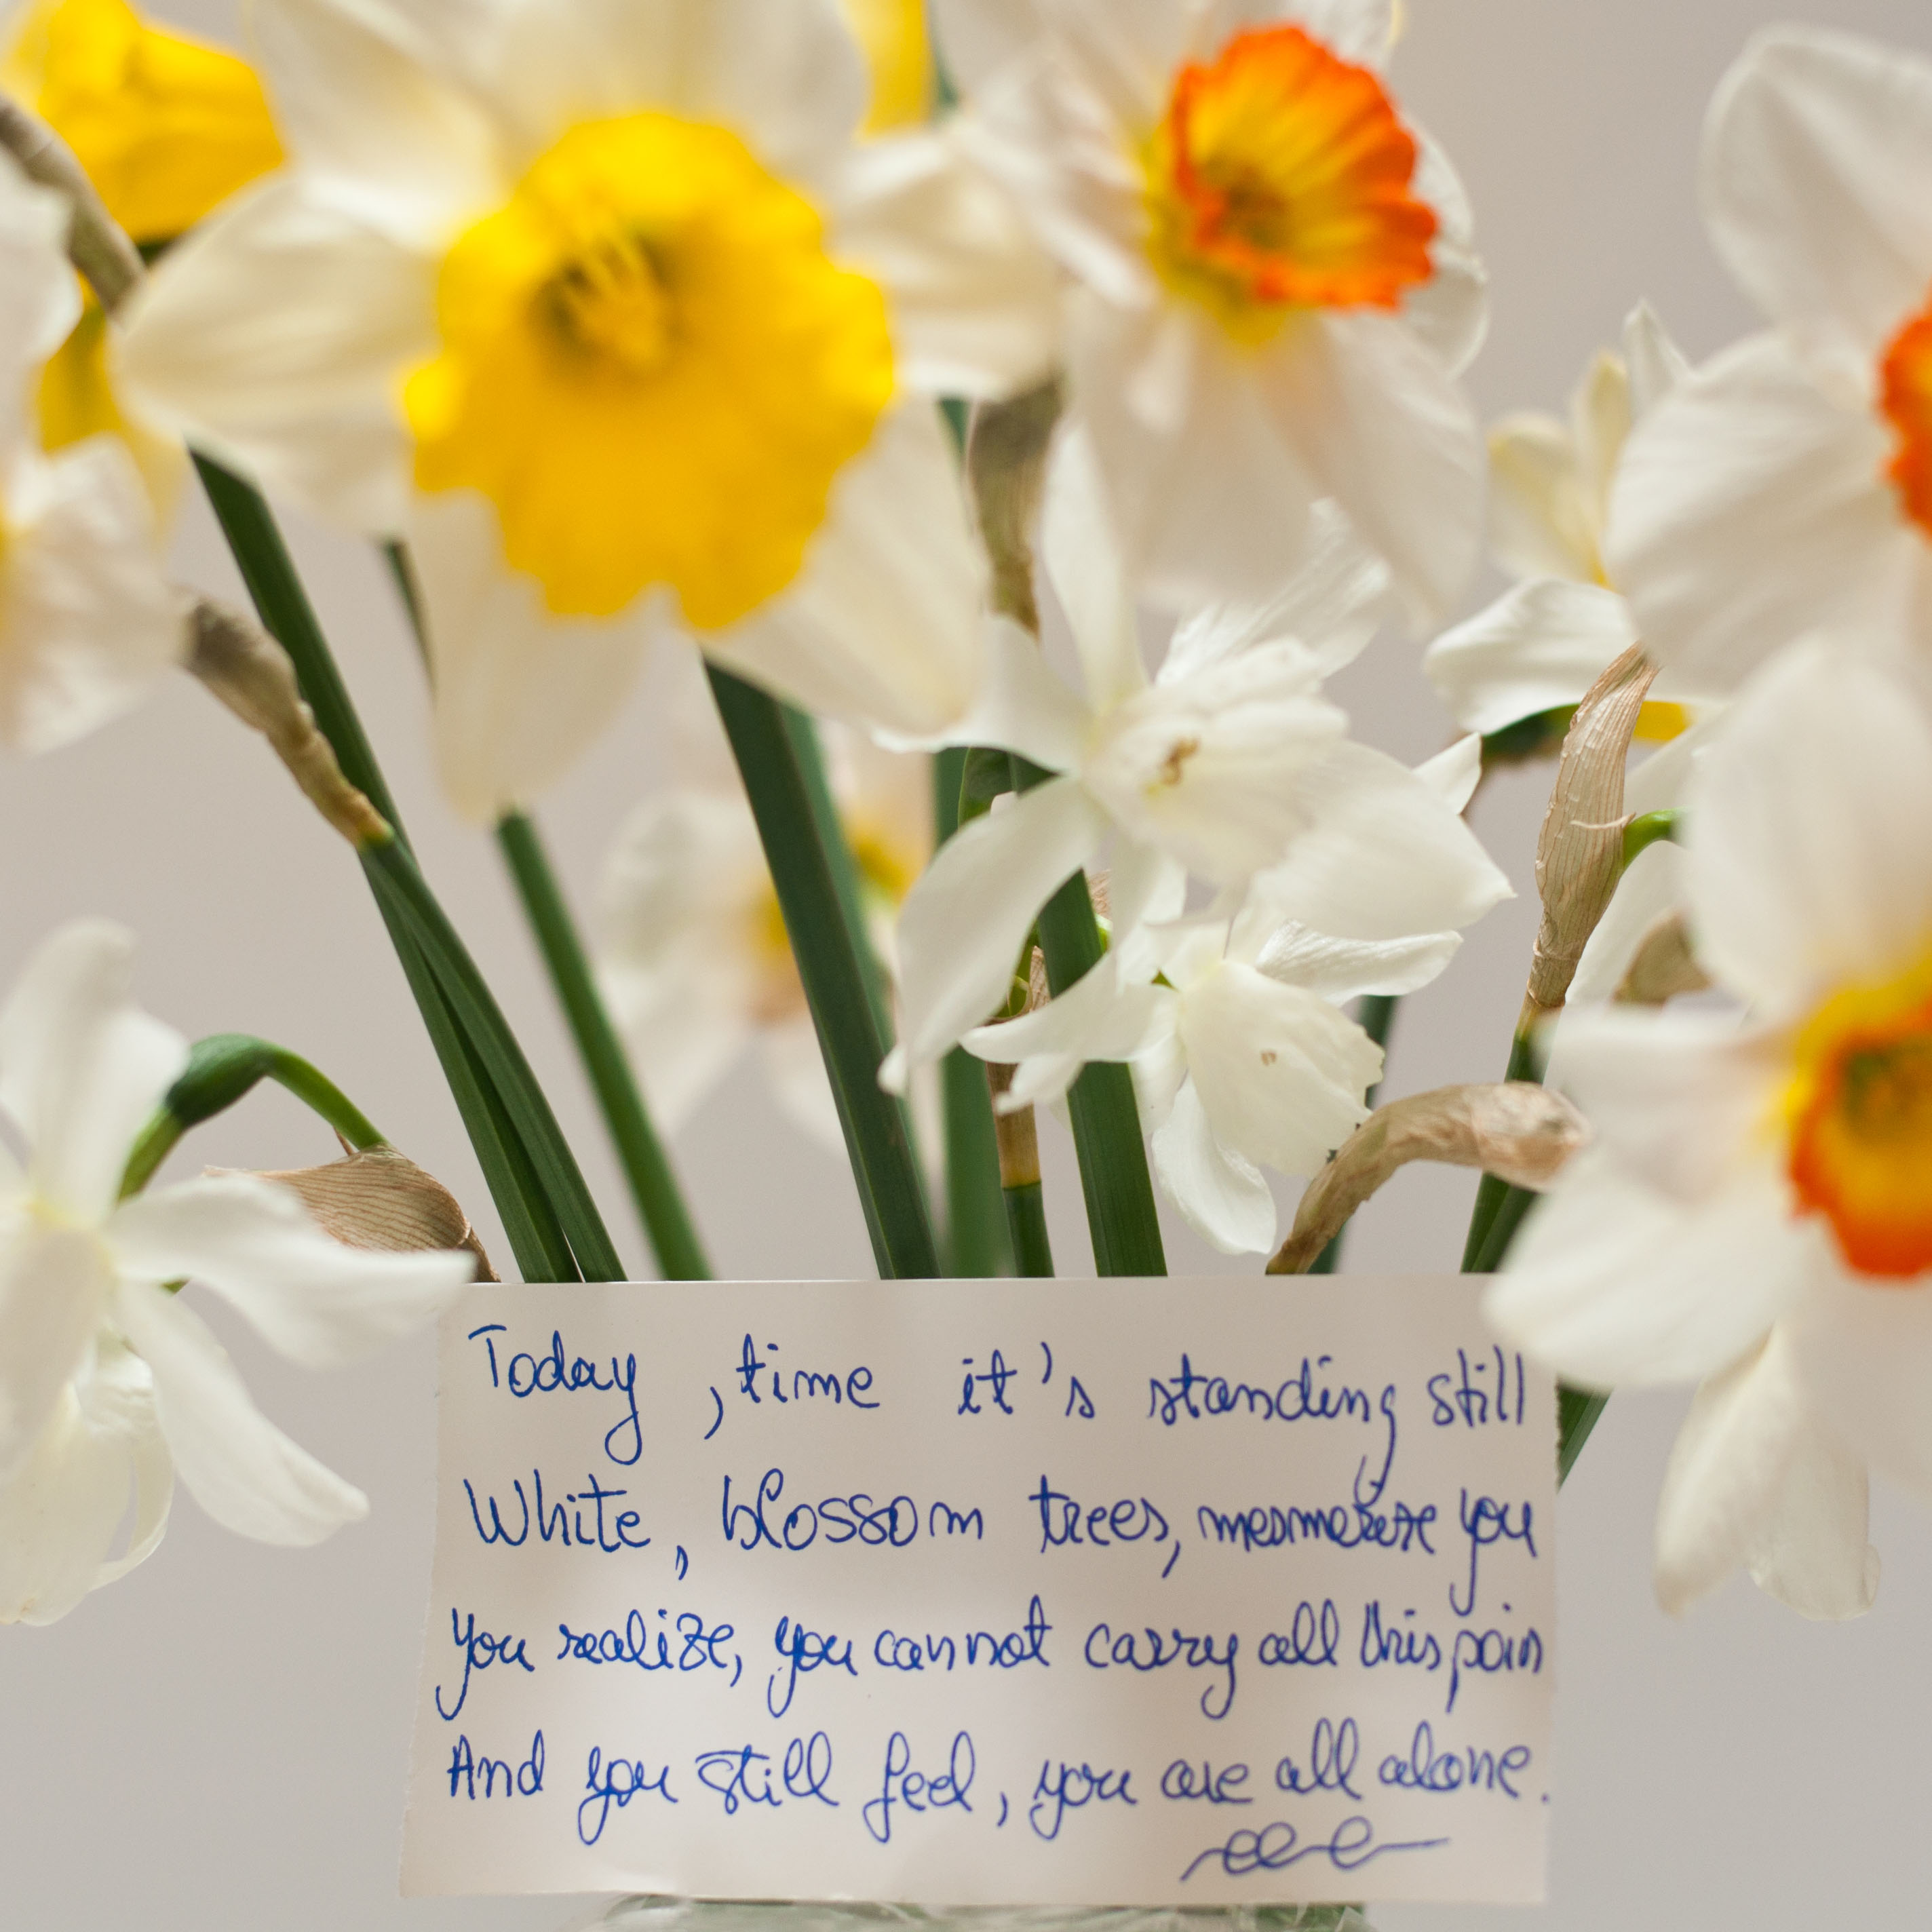 Today , time it's standing still
White, blossom trees, mesmerize you
You realize, you cannot carry all this pain
And you still feel, you are all alone.